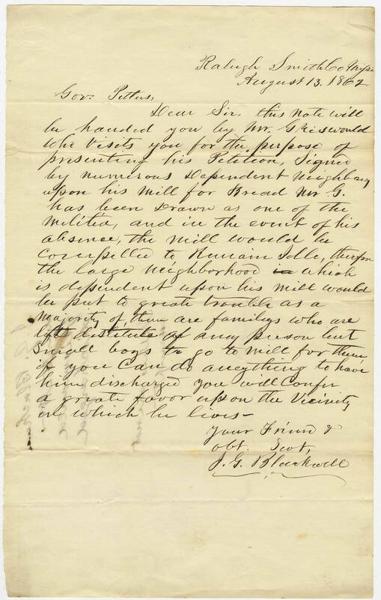 Raleigh Smith Co Miss
August 13. 1862
Gov. Pettus,
Dear Sir, this Note will
be handed you by Mr. Griswould
who visits you for the purpose of
presenting his Petition, Signed
by numerous dependent Neighbors
upon his Mill for Bread Mr G.
has been Drawn as one of the
Militia, and in the event of his
absence, the Mill would be
compelled to Remain Idle, therefore
the large Neighborhood which
is dependent upon his Mill would
be put to great trouble as a
Majority of them are familys who are
left destitute of any person but
Small boys to go to Mill for them
if you Can do anything to have
him discharged you will Confer
a great favor upon the Vicinity
in which he lives-
Your Friend &
obt. Svt,
J. G. Blackwell